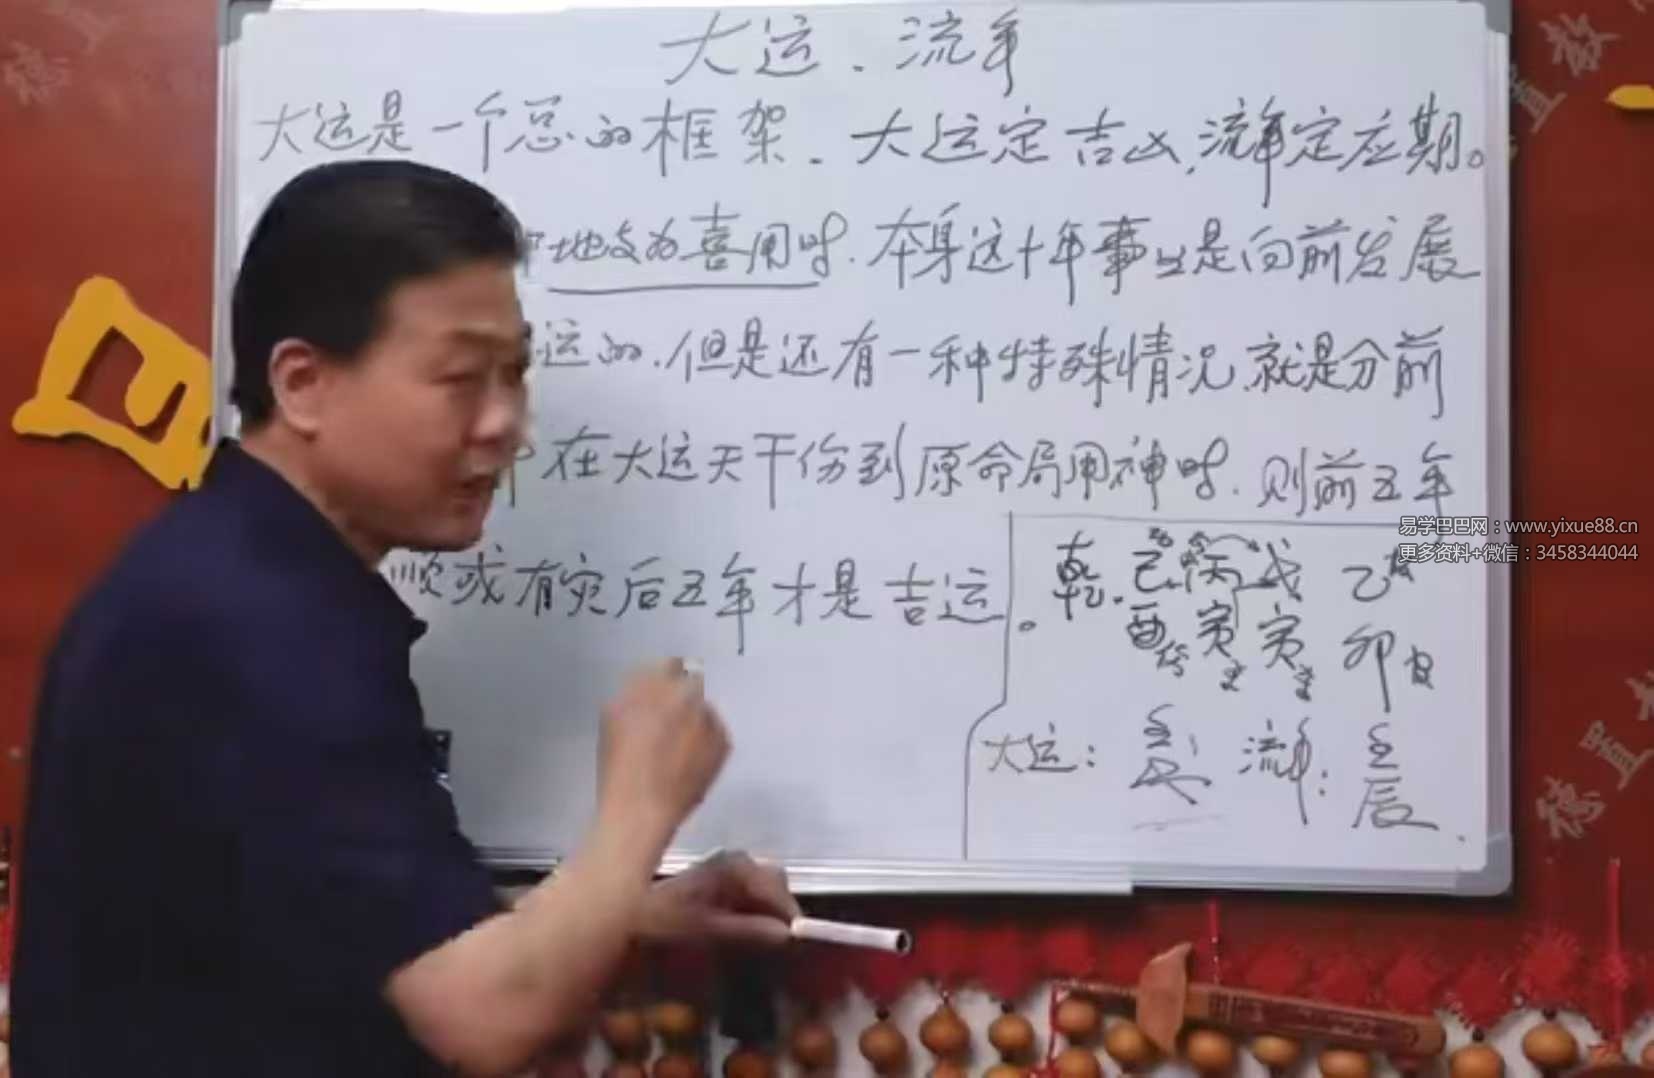 大运、流年
大运是一个总的框架.大运定吉凶,流年定应期。
地支为喜用时.本身这十年事业是向前发展
运的.但是还有一种特殊情况.就是分前
在大运天干伤到原命局用神时.则前五年
顺或有灾后五年才是吉运。
乾.己丙戊乙
酉寅寅卯
大运: 流年:
壬辰
易学巴巴网:www.yixue88.cn
更多资料+微信:3458344044
德直
教
直
德直